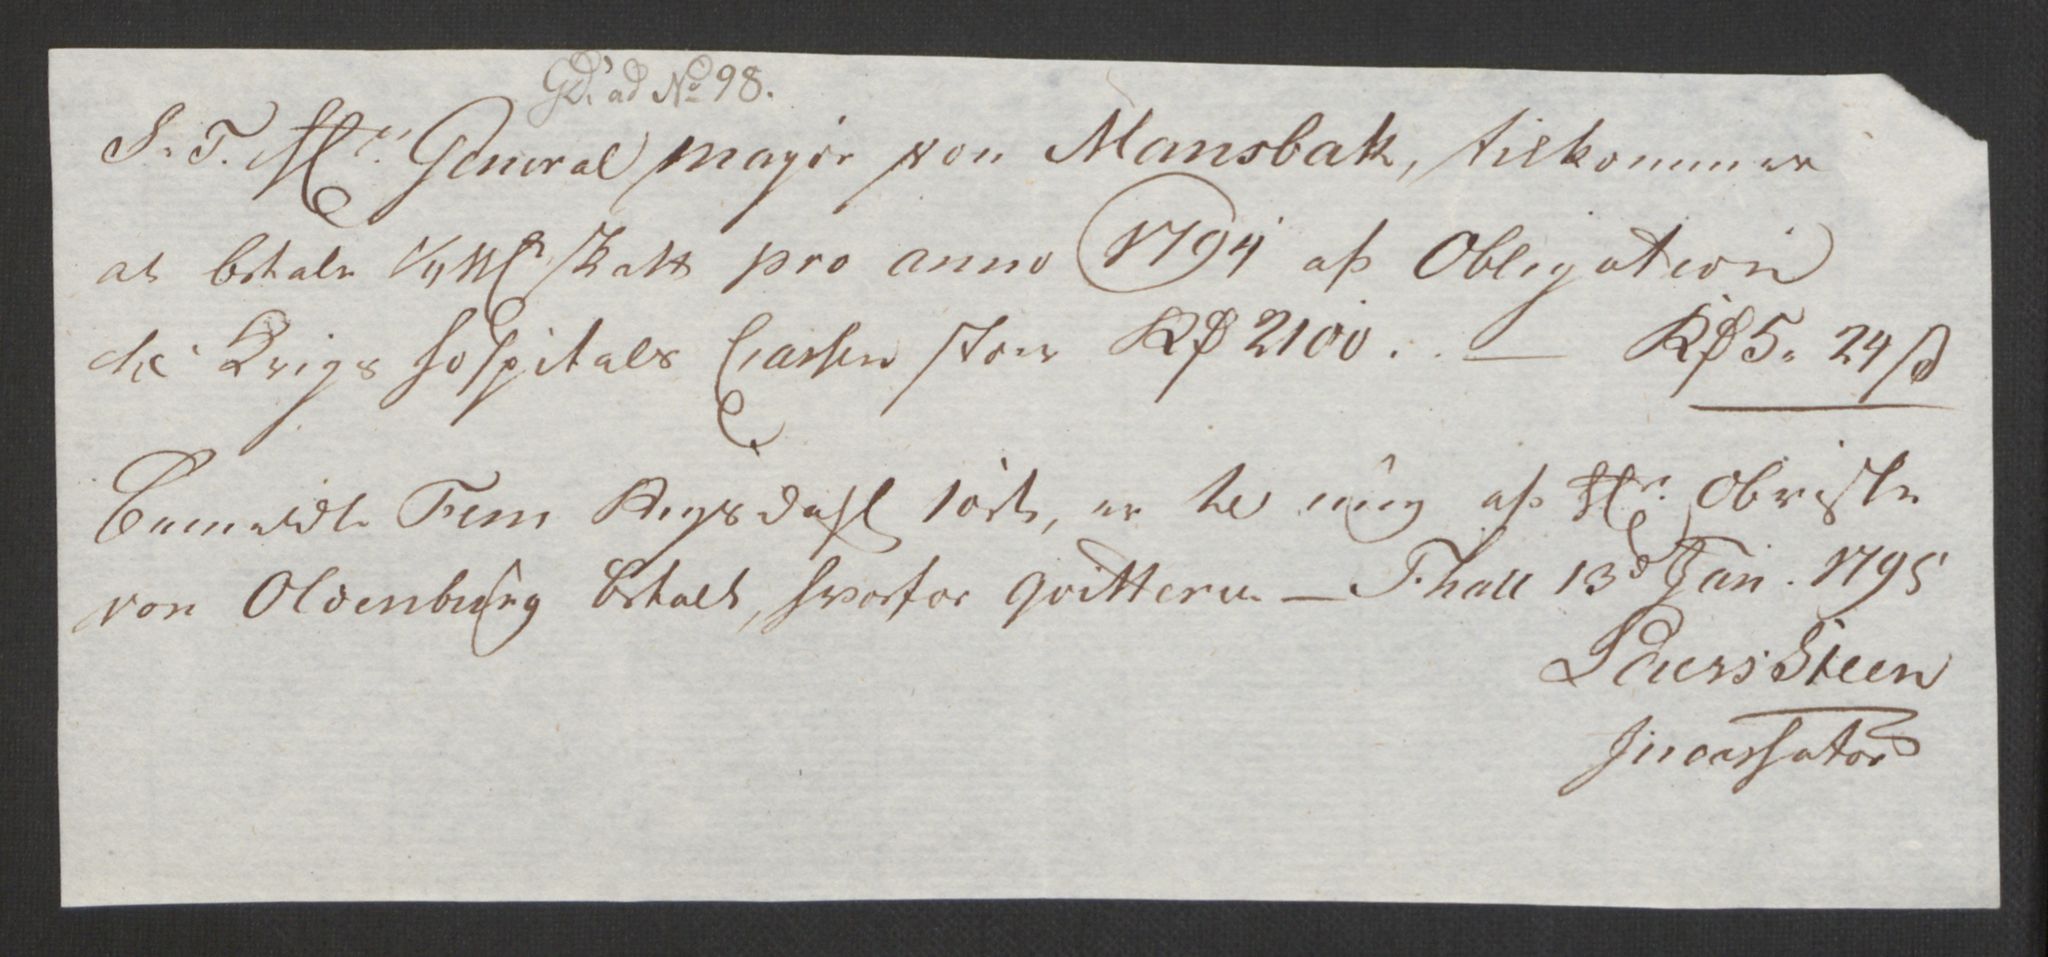 Gd. ad No 98.
S. T. Hr. General mayor von Mansbak, tilkommer
at betale 1/4 pCt Skatt pro anno 1794 af Obligation
til Krigs Hospitals Cassen stor Rd 2100. — Rd 5. 24 ß
Bemeldte Fem Rigsdahl 24 ß, er til mig af Hr. Obriste
von Oldenburg betalt, hvorfor qvitteres — Fhald 13d Jan. 1795
Steen
Incassator